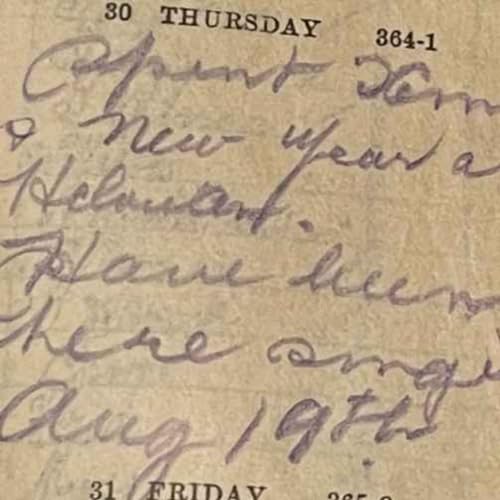 30 THURSDAY 364-1
Spent Xm
& New Year a
Helouan.
Have been
here
Aug 19th
31 FRIDAY